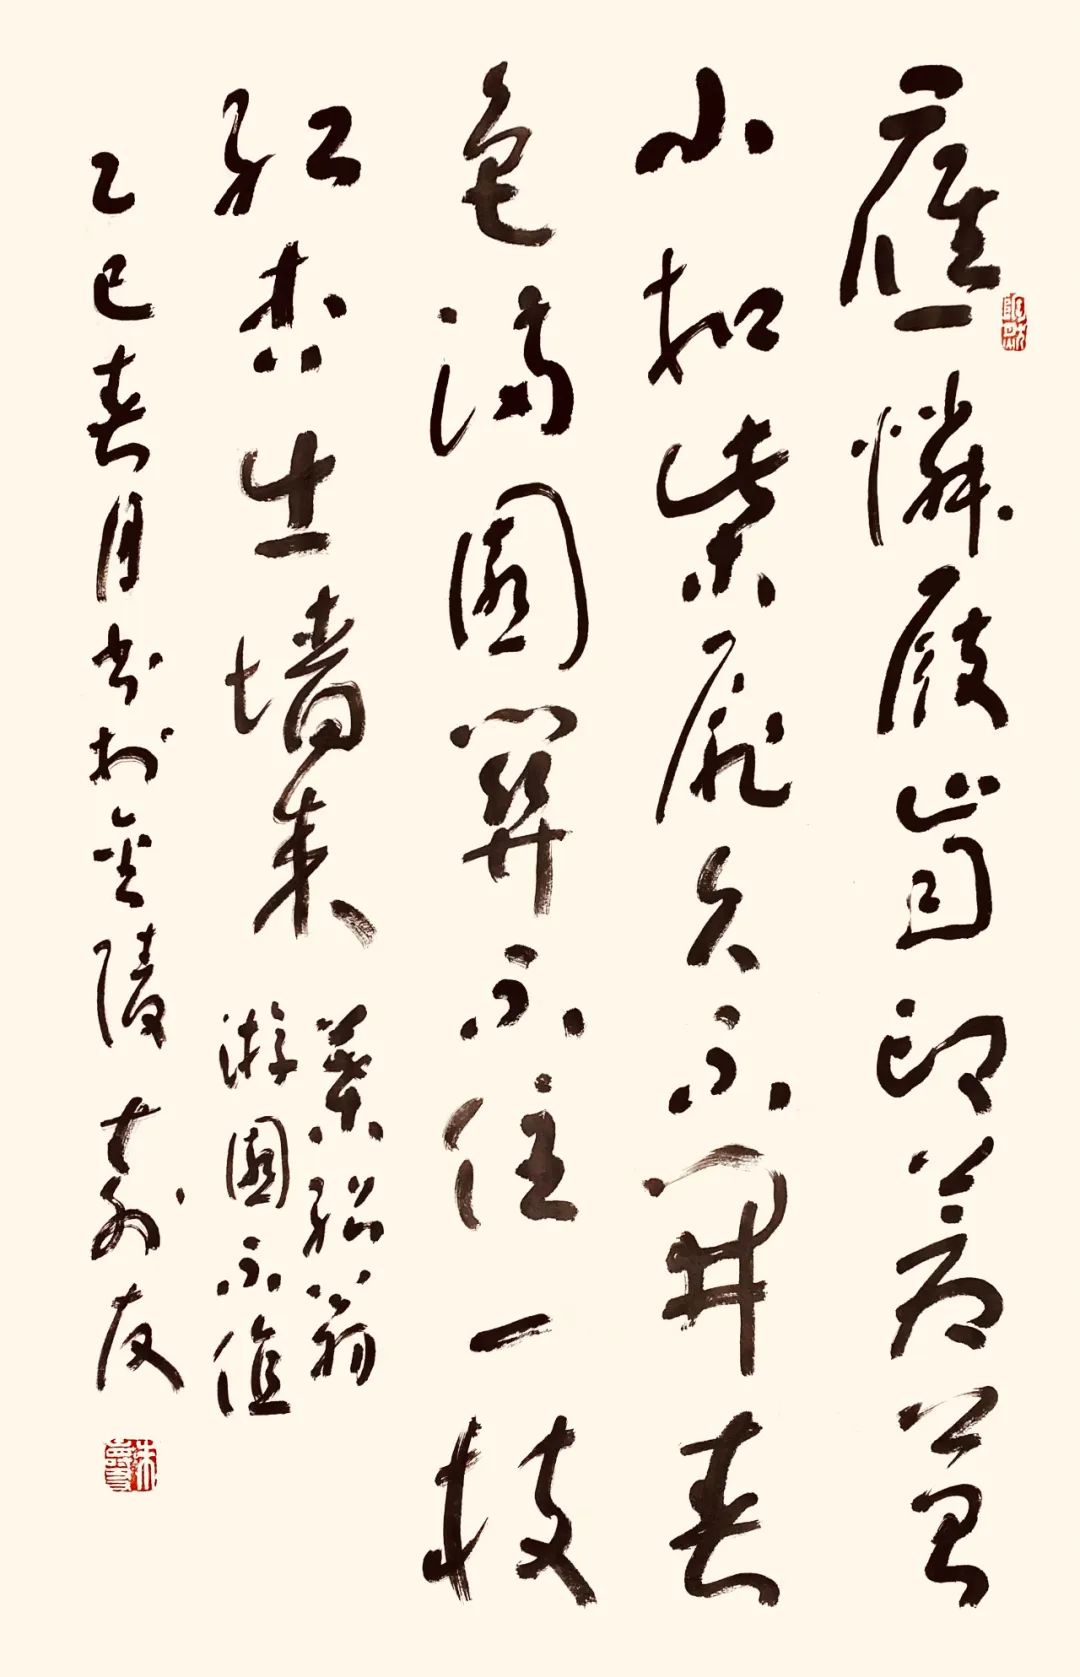 應憐屐齒印蒼苔
小扣柴扉久不開春
色滿園關不住一枝
紅杏出墙来
葉紹翁
游園不值
乙巳春月书於金陵 壽友